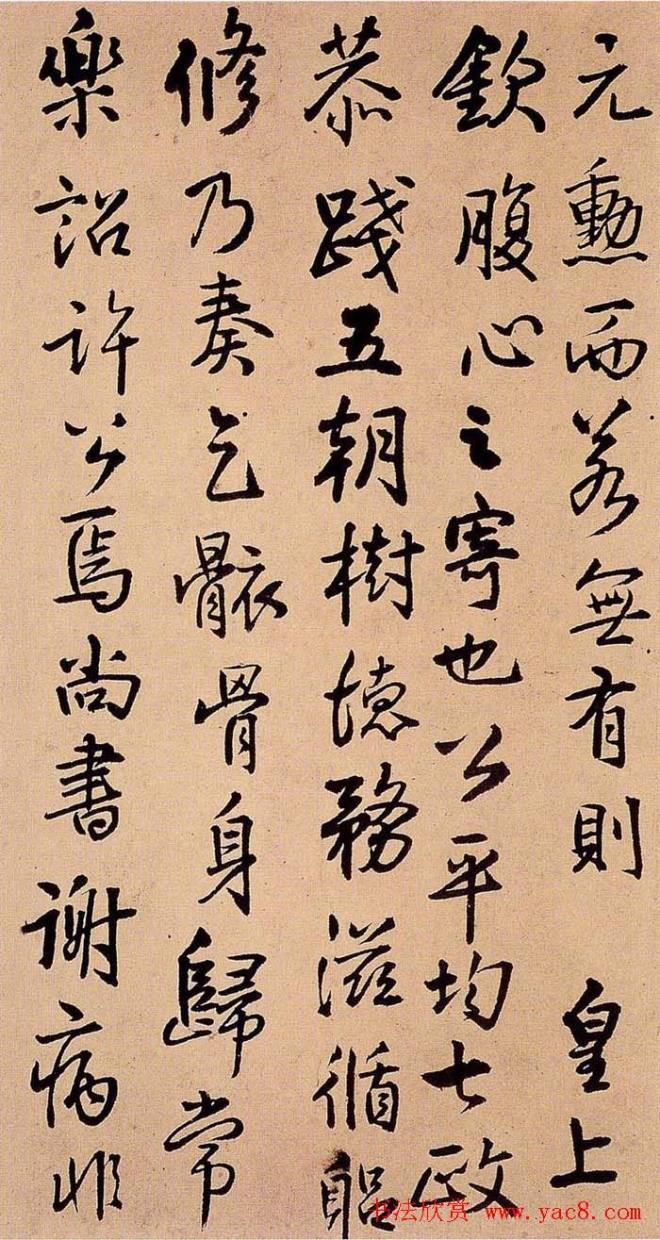 元勳而若無有則 皇上
欽腹心之寄也公平均七政
恭踐五朝樹德務滋循
修乃奏乞骸骨身歸常
樂詔許公焉尚書謝病非
书法欣赏 www.yac8.com